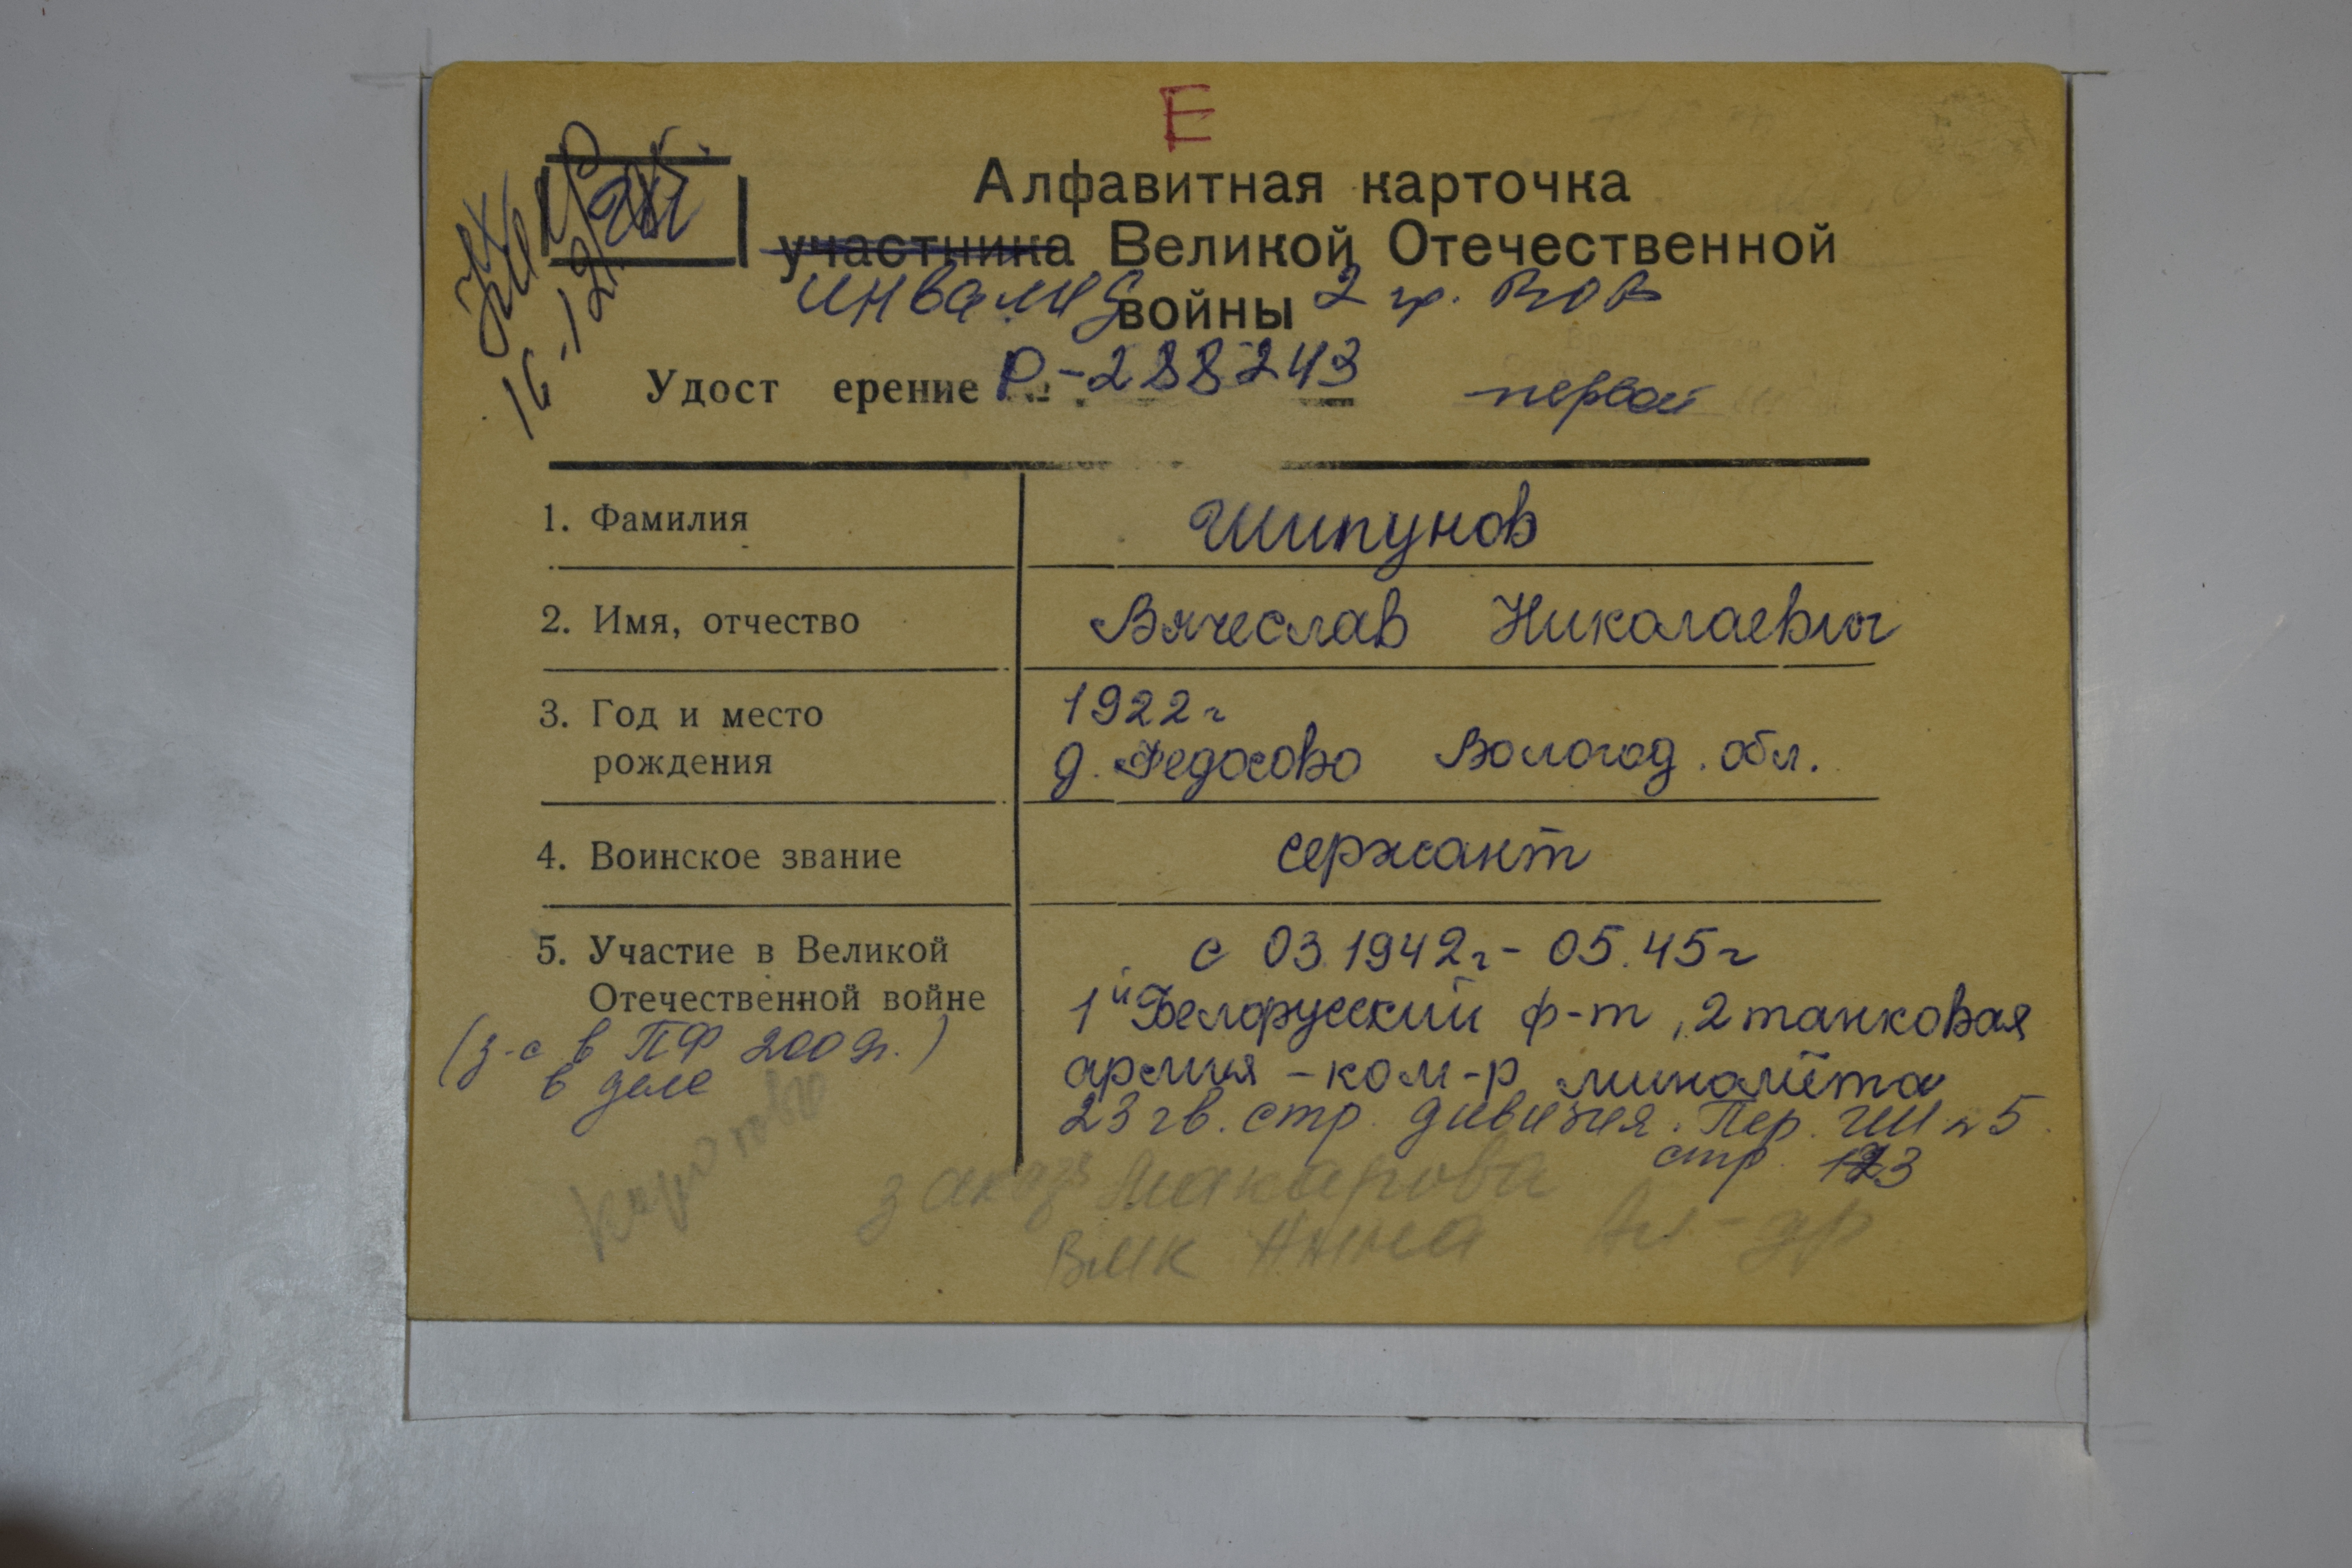 Е
Алфавитная карточка
участника Великой Отечественной
инвалид войны 2 гр. ВОВ
Удост ерение Р-288243 первой
16-12
1. Фамилия Шипунов
2. Имя, отчество Вячеслав Николаевич
3. Год и место 1922г
рождения д. Федосово Вологод. обл.
4. Воинское звание сержант
5. Участие в Великой с 03.1942г - 05.45г
Отечественной войне 1й Белорусский ф-т, 2 танковая
(з-с в ПФ 2002г.) армия - ком-р миномёта
в деле 23 гв. стр. дивизия. Пер. ГШ № 5
стр. 123
заказ Макарова
ВМК Анна Ал-др